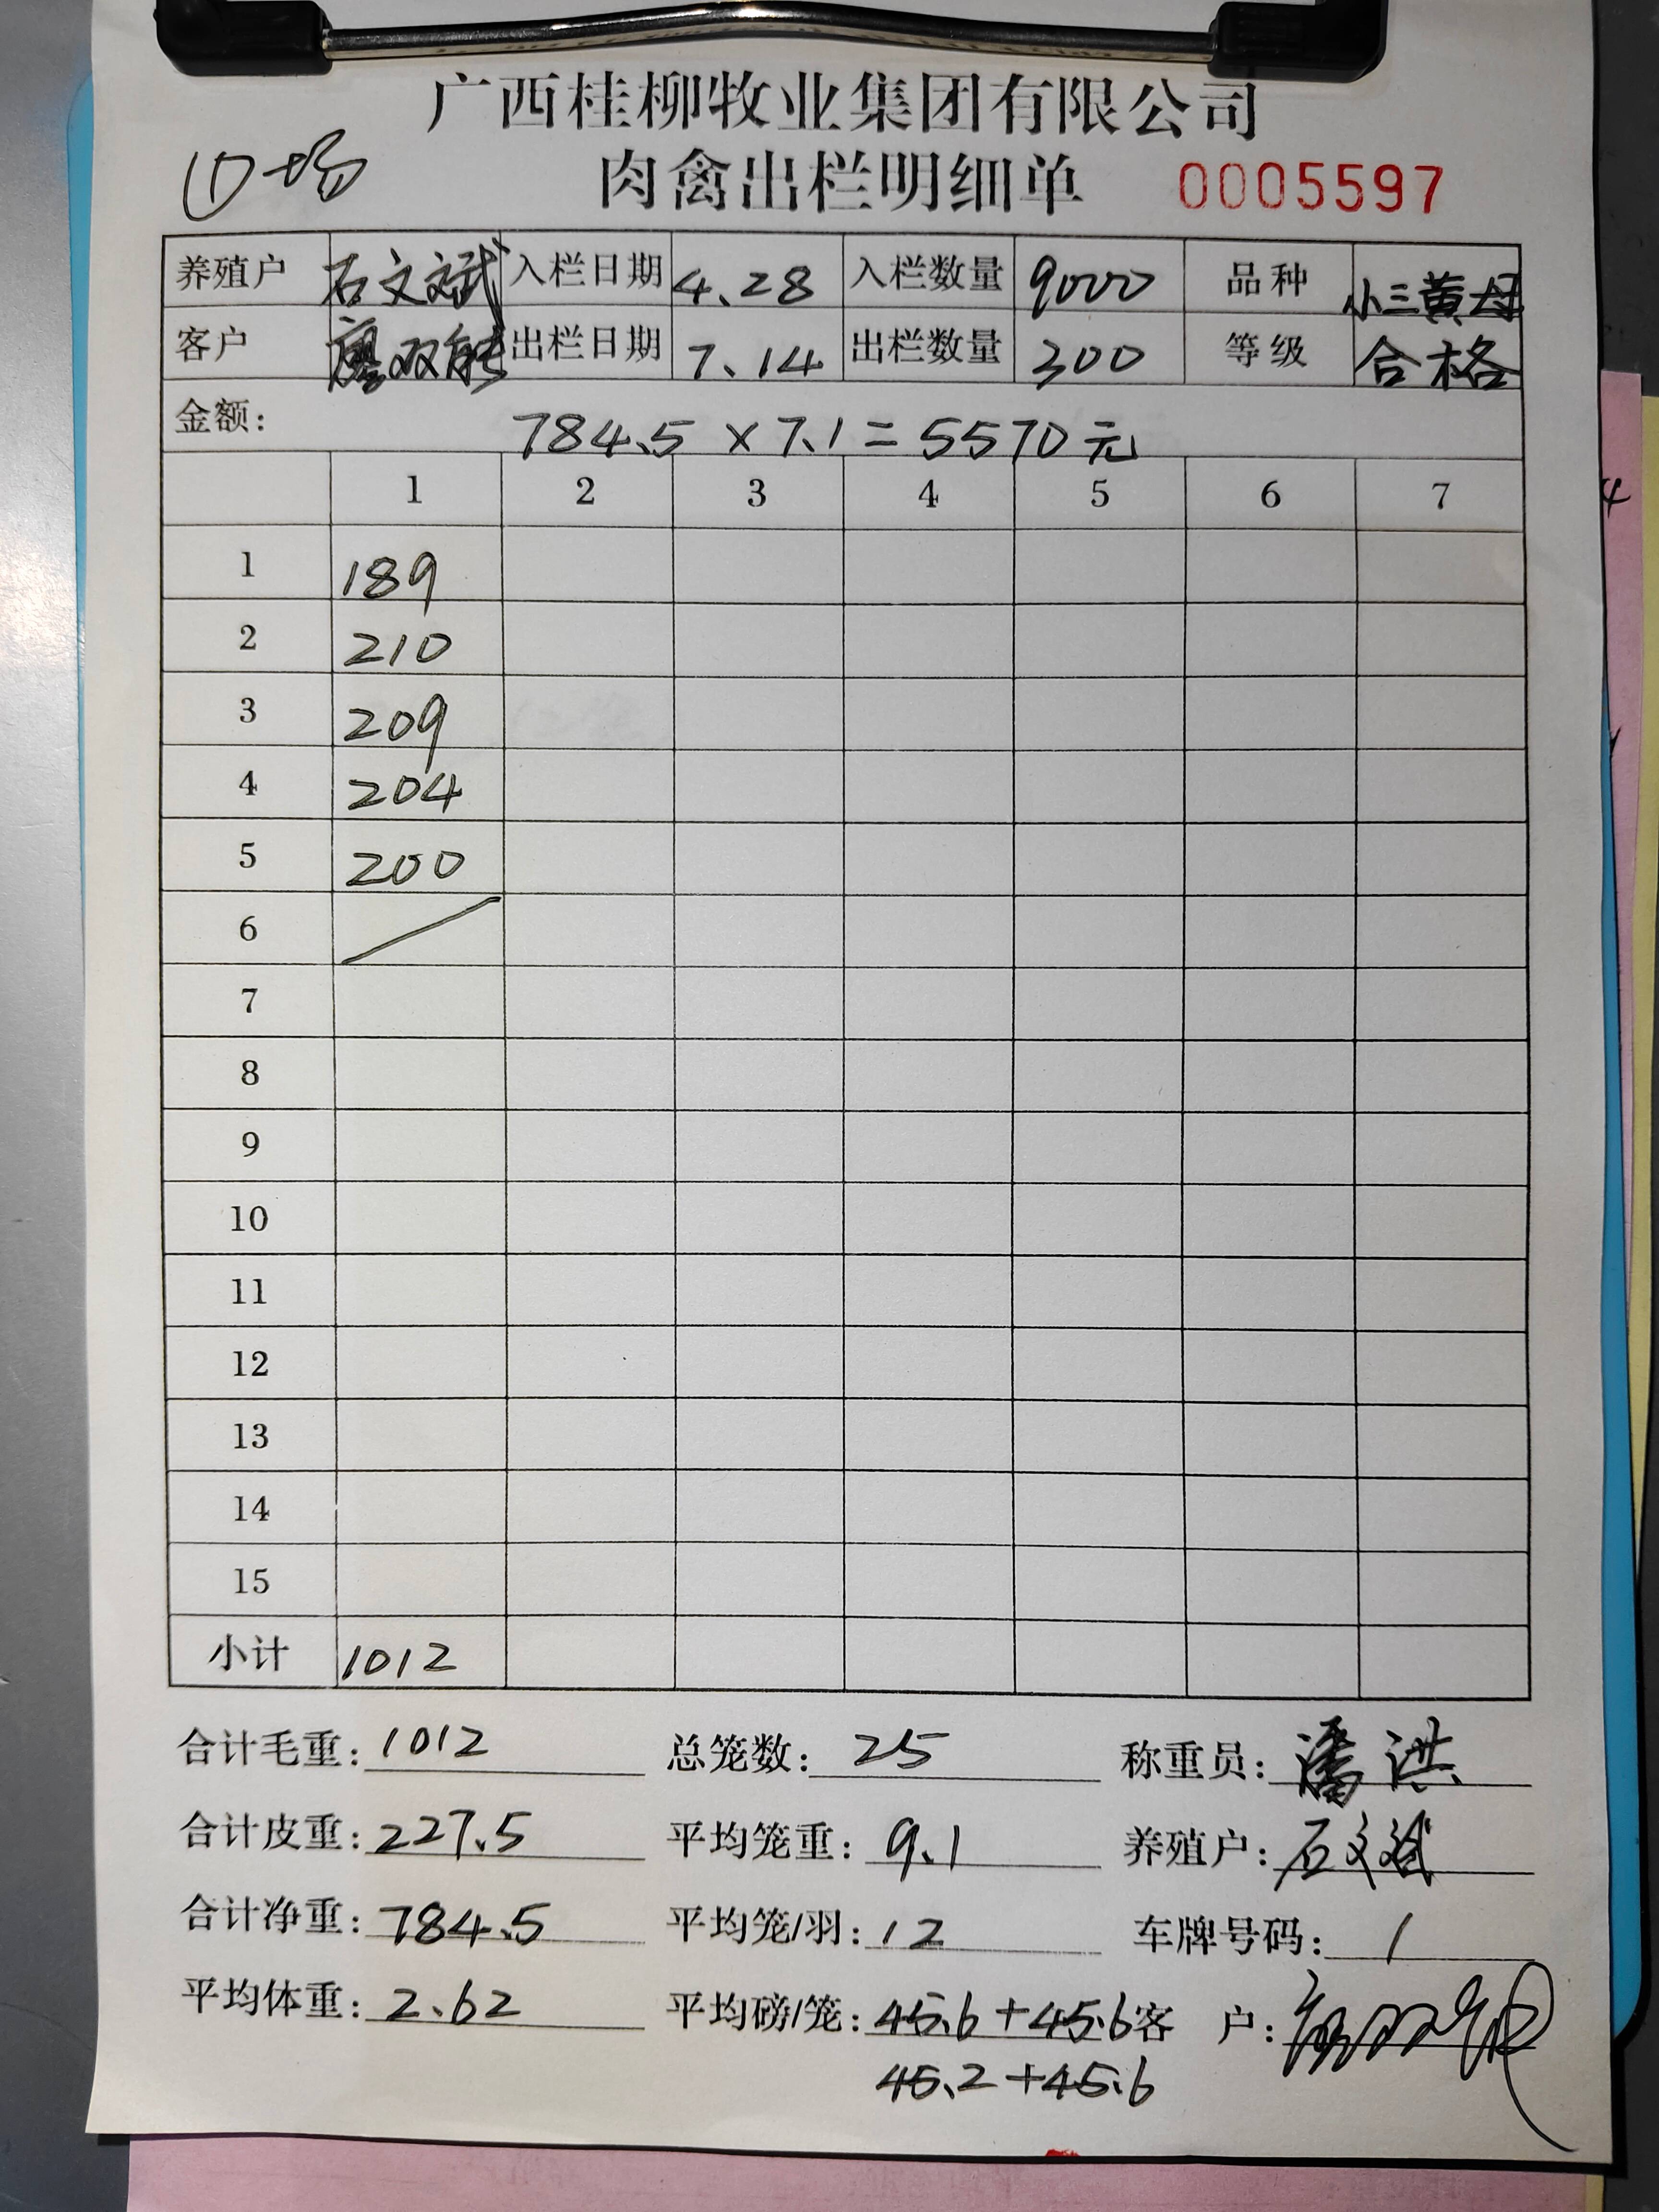 广西桂柳牧业集团有限公司
①场 肉禽出栏明细单 0005597
养殖户 石文斌 入栏日期 4.28 入栏数量 9000 品种 小三黄母
客户 廖双能 出栏日期 7.14 出栏数量 300 等级 合格
金额: 784.5 × 7.1 = 5570元
1 2 3 4 5 6 7
1 189
2 210
3 209
4 204
5 200
6
7
8
9
10
11
12
13
14
15
小计 1012
合计毛重: 1012 总笼数: 25 称重员: 潘洪
合计皮重: 227.5 平均笼重: 9.1 养殖户: 石文斌
合计净重: 784.5 平均笼/羽: 12 车牌号码: 1
平均体重: 2.62 平均磅/笼: 45.6+45.6 客 户:
45.2+45.6